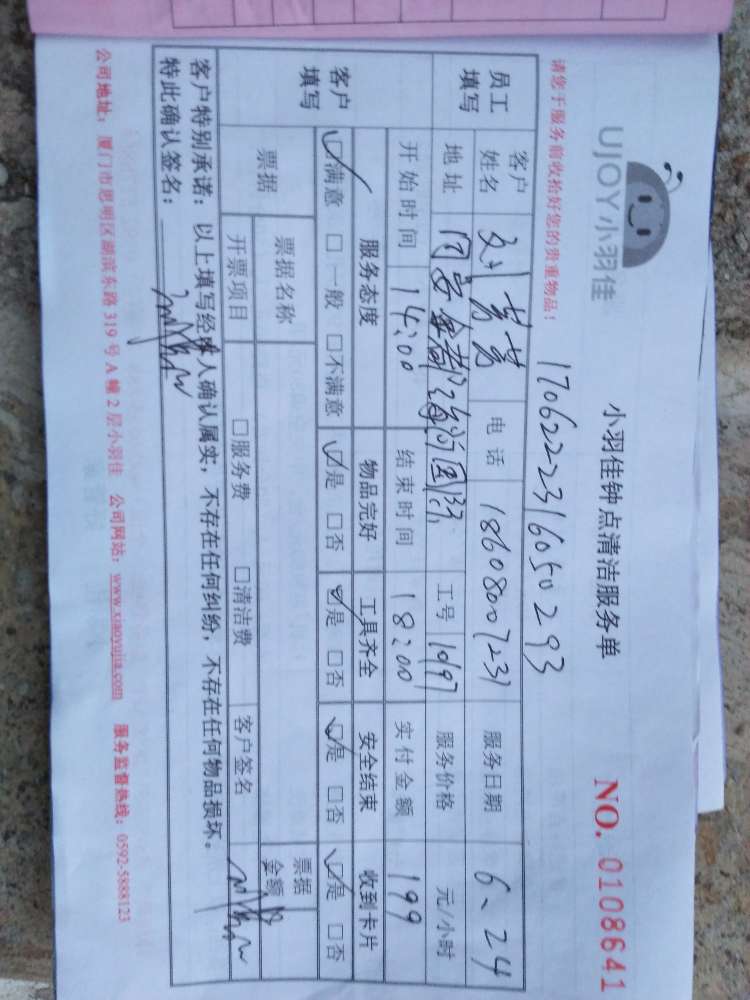 UJOY小羽佳
小羽佳钟点清洁服务单
NO. 0108641
请您于服务前收拾好您的贵重物品！
1706222316050293
员工填写
客户姓名 电话 18608007231 服务日期 6、24
地址 同安 工号 1097 服务价格 元/小时
开始时间 14:00 结束时间 18:00 实付金额 199
客户填写
服务态度 物品完好 工具齐全 安全结束 收到卡片
☑满意 □一般 □不满意 ☑是 □否 ☑是 □否 ☑是 □否 ☑是 □否
票据
票据名称 票据金额
开票项目 □服务费 □清洁费 客户签名
客户特别承诺：以上填写经本人确认属实，不存在任何纠纷，不存在任何物品损坏。
特此确认签名：
公司地址：厦门市思明区湖滨东路319号A幢2层小羽佳 公司网站：www.xiaoyujia.com 服务监督热线：0592-5888123